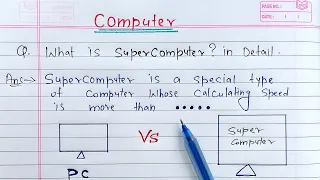 PAGE NO.:
DATE: / /
Computer
Q. What is SuperComputer? in Detail.
Ans:→ SuperComputer is a special type
of Computer Whose Calculating Speed
is more than .....
Vs
Super
Computer
PC